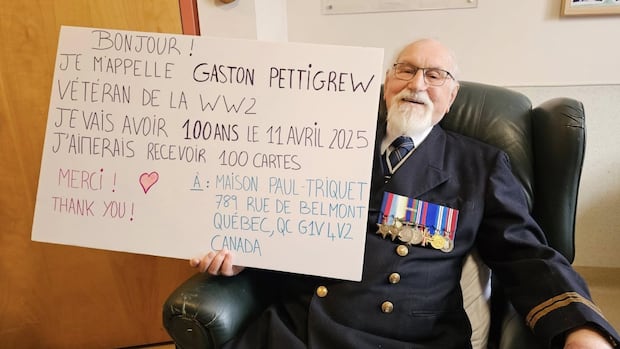 BONJOUR !
JE M'APPELLE GASTON PETTIGREW
VÉTÉRAN DE LA WW2
JE VAIS AVOIR 100 ANS LE 11 AVRIL 2025
J'AIMERAIS RECEVOIR 100 CARTES
MERCI !
THANK YOU !
À : MAISON PAUL-TRIQUET
789 RUE DE BELMONT
QUÉBEC, QC G1V 4V2
CANADA